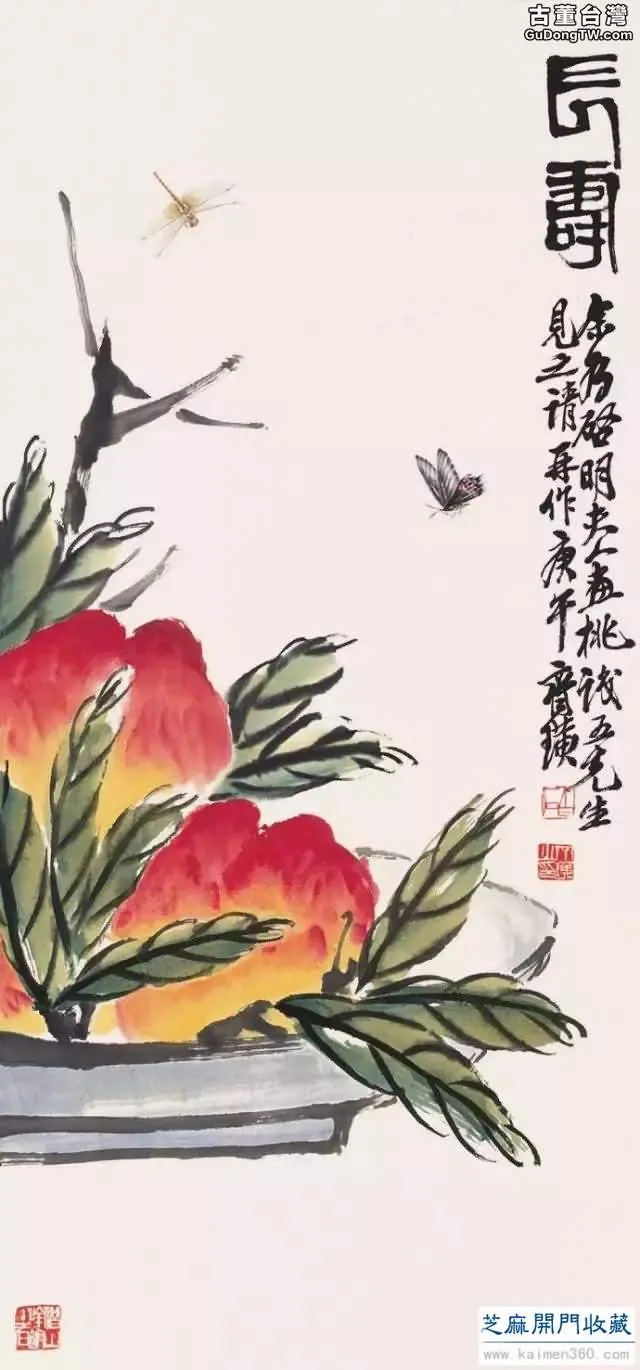 古董台灣
GuDongTW.com
長壽
余为啓明夫人畫桃識五先生
見之請再作庚午齊璜
芝麻開門收藏
www.kaimen360.com